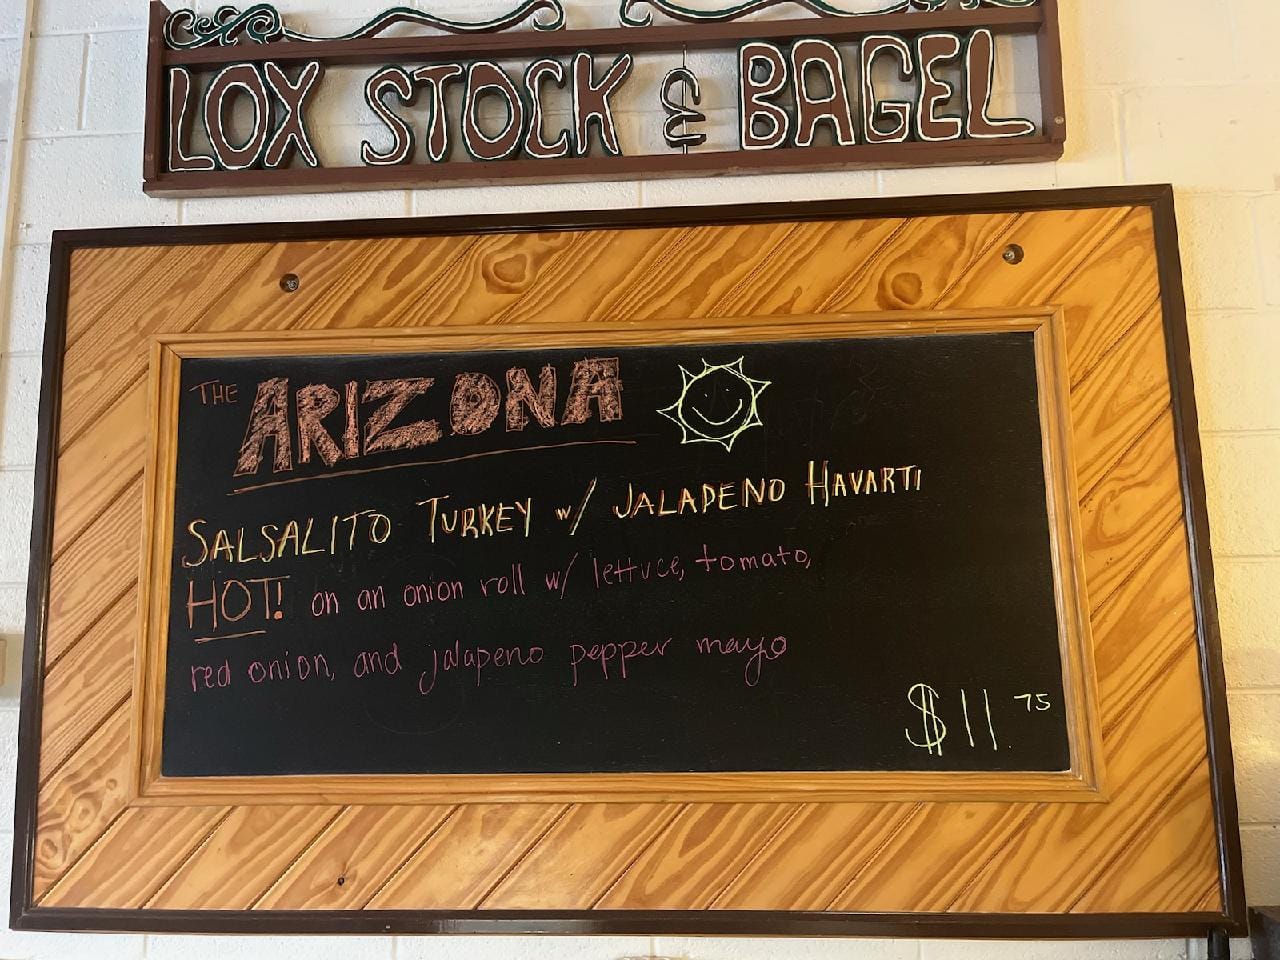 LOX STOCK & BAGEL
THE ARIZONA
SALSALITO TURKEY w/ JALAPENO HAVARTI
HOT! on an onion roll w/ lettuce, tomato,
red onion, and jalapeno pepper mayo
$11.75